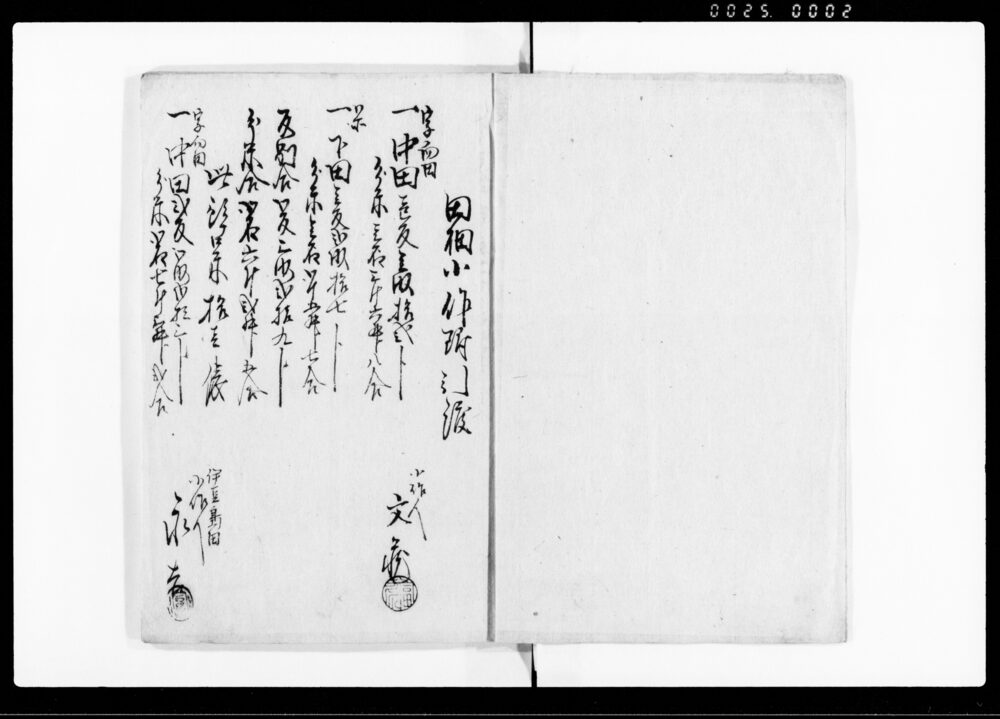 0025. 0002
田畑小作附引渡
字前田
一中田壱反壱畝拾弐歩
分米壱石三斗六升八合
小作人
文蔵
福
一下田壱反弐畝拾七歩
分米壱石弐斗五升七合
反別合弐反三畝弐拾九歩
分米合弐石六斗弐升五合
此預ケ米拾壱俵
字前田
一中田弐反弐畝弐拾三歩
分米弐石七斗三升弐合
伊豆島田
小作人
永吉